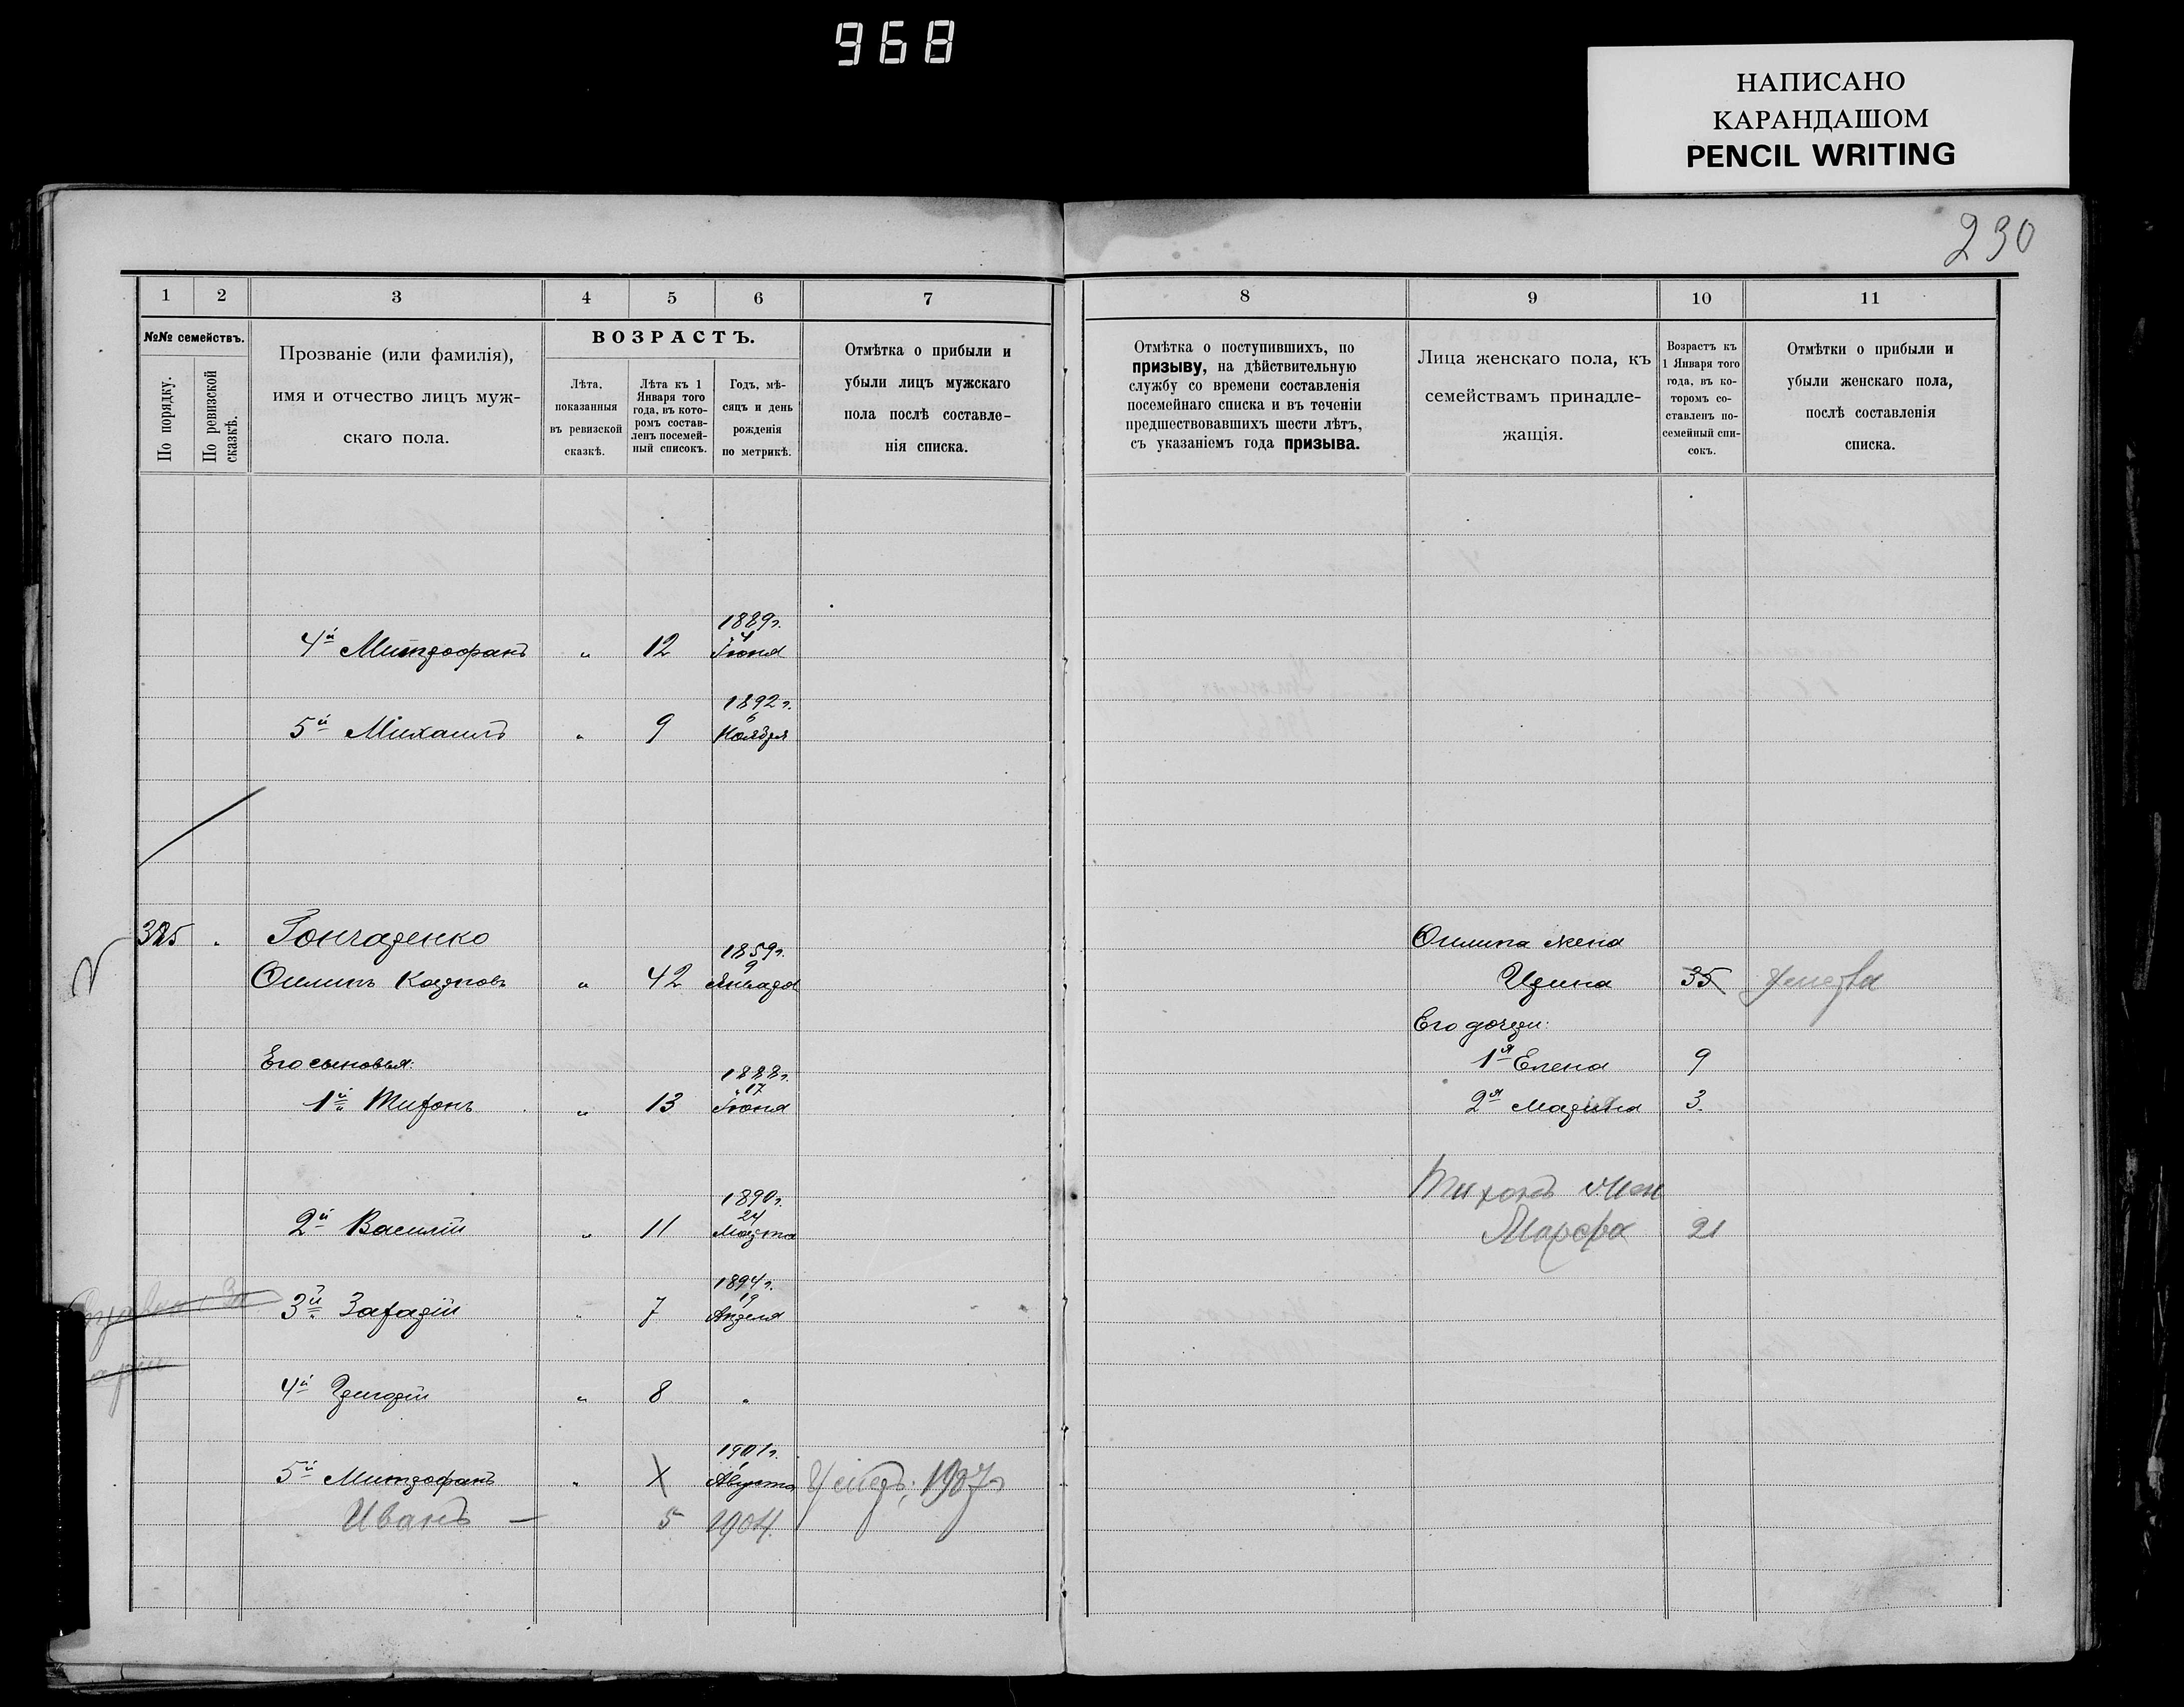 968
НАПИСАНО
КАРАНДАШОМ
PENCIL WRITING
230
1 2 3 4 5 6 7
№№ семействъ.
По порядку.
По ревизской сказкѣ.
Прозваніе (или фамилія),
имя и отчество лицъ муж-
скаго пола.
ВОЗРАСТЪ.
Лѣта,
показанныя
въ ревизской
сказкѣ.
Лѣта къ 1
Января того
года, въ кото-
ромъ состав-
ленъ посемей-
ный списокъ.
Годъ, мѣ-
сяцъ и день
рожденія
по метрикѣ.
Отмѣтка о прибыли и
убыли лицъ мужскаго
пола послѣ составле-
нія списка.
8 9 10 11
Отмѣтка о поступившихъ, по
призыву, на дѣйствительную
службу со времени составленія
посемейнаго списка и въ теченіи
предшествовавшихъ шести лѣтъ,
съ указаніемъ года призыва.
Лица женскаго пола, къ
семействамъ принадле-
жащія.
Возрастъ къ
1 Января того
года, въ ко-
торомъ со-
ставленъ по-
семейный спи-
сокъ.
Отмѣтки о прибыли и
убыли женскаго пола,
послѣ составленія
списка.
1889 г.
4й Митрофанъ " 12 4 Іюня
1892 г.
5й Михаилъ " 9 6 Ноября
325 Гончаренко
1859 г.
Филипъ Карповъ " 42 9 Января
Его сыновья:
1888 г.
1й Тихонъ " 13 17 Іюня
1890 г.
2й Василій " 11 24 Марта
1894 г.
3й Захарій " 7 19 Апреля
4й Григорій " 8 "
1901 г.
5й Митрофанъ " Августа Умеръ 1907 г
Иванъ — 5 1904.
Филипа жена
Ирина 35 умерла
Его дочери:
1я Елена 9
2я Марина 3.
Тихонъ жен
Марфа 21